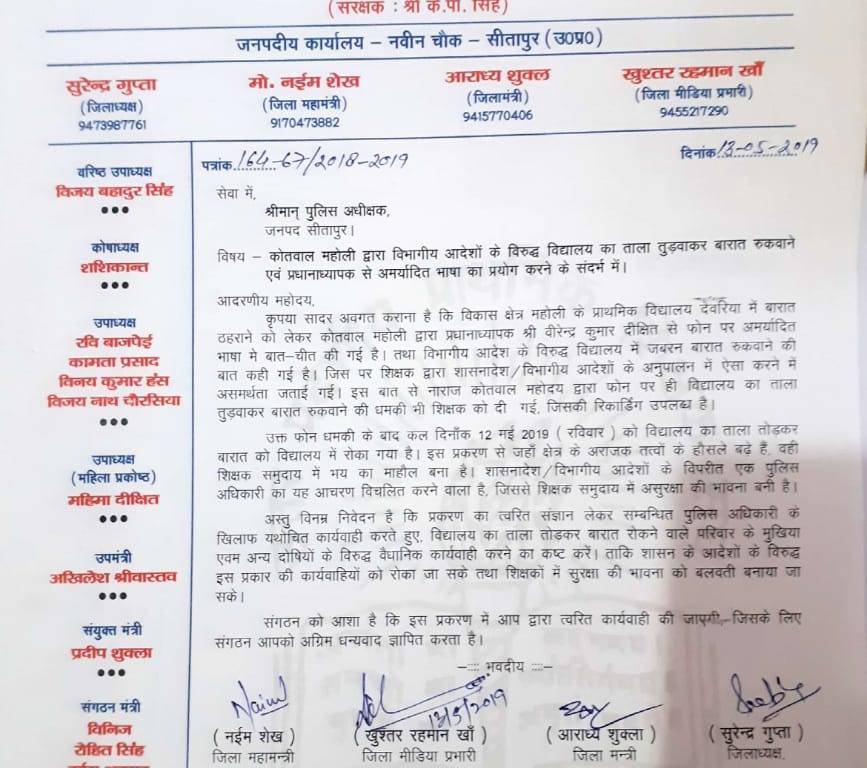 (संरक्षक : श्री के.पी. सिंह)
जनपदीय कार्यालय – नवीन चौक – सीतापुर (उ०प्र०)
सुरेन्द्र गुप्ता
(जिलाध्यक्ष)
9473987761
मो. नईम शेख
(जिला महामंत्री)
9170473882
आराध्य शुक्ल
(जिलामंत्री)
9415770406
खुश्तर रहमान खाँ
(जिला मीडिया प्रभारी)
9455217290
वरिष्ठ उपाध्यक्ष
विजय बहादुर सिंह
कोषाध्यक्ष
शशिकान्त
उपाध्यक्ष
रवि बाजपेई
कामता प्रसाद
विनय कुमार हंस
विजय नाथ चौरसिया
उपाध्यक्ष
(महिला प्रकोष्ठ)
महिमा दीक्षित
उपमंत्री
अखिलेश श्रीवास्तव
संयुक्त मंत्री
प्रदीप शुक्ला
संगठन मंत्री
विनिज
रोहित सिंह
पत्रांक 164-67/2018-2019
दिनांक 13-05-2019
सेवा में,
श्रीमान् पुलिस अधीक्षक,
जनपद सीतापुर।
विषय – कोतवाल महोली द्वारा विभागीय आदेशों के विरुद्ध विद्यालय का ताला तुड़वाकर बारात रुकवाने
एवं प्रधानाध्यापक से अमर्यादित भाषा का प्रयोग करने के संदर्भ में।
आदरणीय महोदय,
कृपया सादर अवगत कराना है कि विकास क्षेत्र महोली के प्राथमिक विद्यालय देवरिया में बारात
ठहराने को लेकर कोतवाल महोली द्वारा प्रधानाध्यापक श्री वीरेन्द्र कुमार दीक्षित से फोन पर अमर्यादित
भाषा मे बात–चीत की गई है। तथा विभागीय आदेश के विरुद्ध विद्यालय में जबरन बारात रुकवाने की
बात कही गई है। जिस पर शिक्षक द्वारा शासनादेश/विभागीय आदेशों के अनुपालन में ऐसा करने में
असमर्थता जताई गई। इस बात से नाराज कोतवाल महोदय द्वारा फोन पर ही विद्यालय का ताला
तुड़वाकर बारात रुकवाने की धमकी भी शिक्षक को दी गई, जिसकी रिकार्डिंग उपलब्ध है।
उक्त फोन धमकी के बाद कल दिनाँक 12 मई 2019 ( रविवार ) को विद्यालय का ताला तोड़कर
बारात को विद्यालय में रोका गया है। इस प्रकरण से जहाँ क्षेत्र के अराजक तत्वों के हौसले बढ़े हैं, वही
शिक्षक समुदाय में भय का माहौल बना है। शासनादेश/विभागीय आदेशों के विपरीत एक पुलिस
अधिकारी का यह आचरण विचलित करने वाला है, जिससे शिक्षक समुदाय में असुरक्षा की भावना बनी है।
अस्तु विनम्र निवेदन है कि प्रकरण का त्वरित संज्ञान लेकर सम्बन्धित पुलिस अधिकारी के
खिलाफ यथोचित कार्यवाही करते हुए, विद्यालय का ताला तोडकर बारात रोकने वाले परिवार के मुखिया
एवम अन्य दोषियों के विरुद्ध वैधानिक कार्यवाही करने का कष्ट करें। ताकि शासन के आदेशों के विरुद्ध
इस प्रकार की कार्यवाहियों को रोका जा सके तथा शिक्षकों में सुरक्षा की भावना को बलवती बनाया जा
सके।
संगठन को आशा है कि इस प्रकरण में आप द्वारा त्वरित कार्यवाही की जाएगी,-जिसके लिए
संगठन आपको अग्रिम धन्यवाद ज्ञापित करता है।
–:::: भवदीय ::::–
Naim
13/5/2019
( नईम शेख )
जिला महामन्त्री
( खुश्तर रहमान खाँ )
जिला मीडिया प्रभारी
( आराध्य शुक्ला )
जिला मन्त्री
( सुरेन्द्र गुप्ता )
जिलाध्यक्ष.